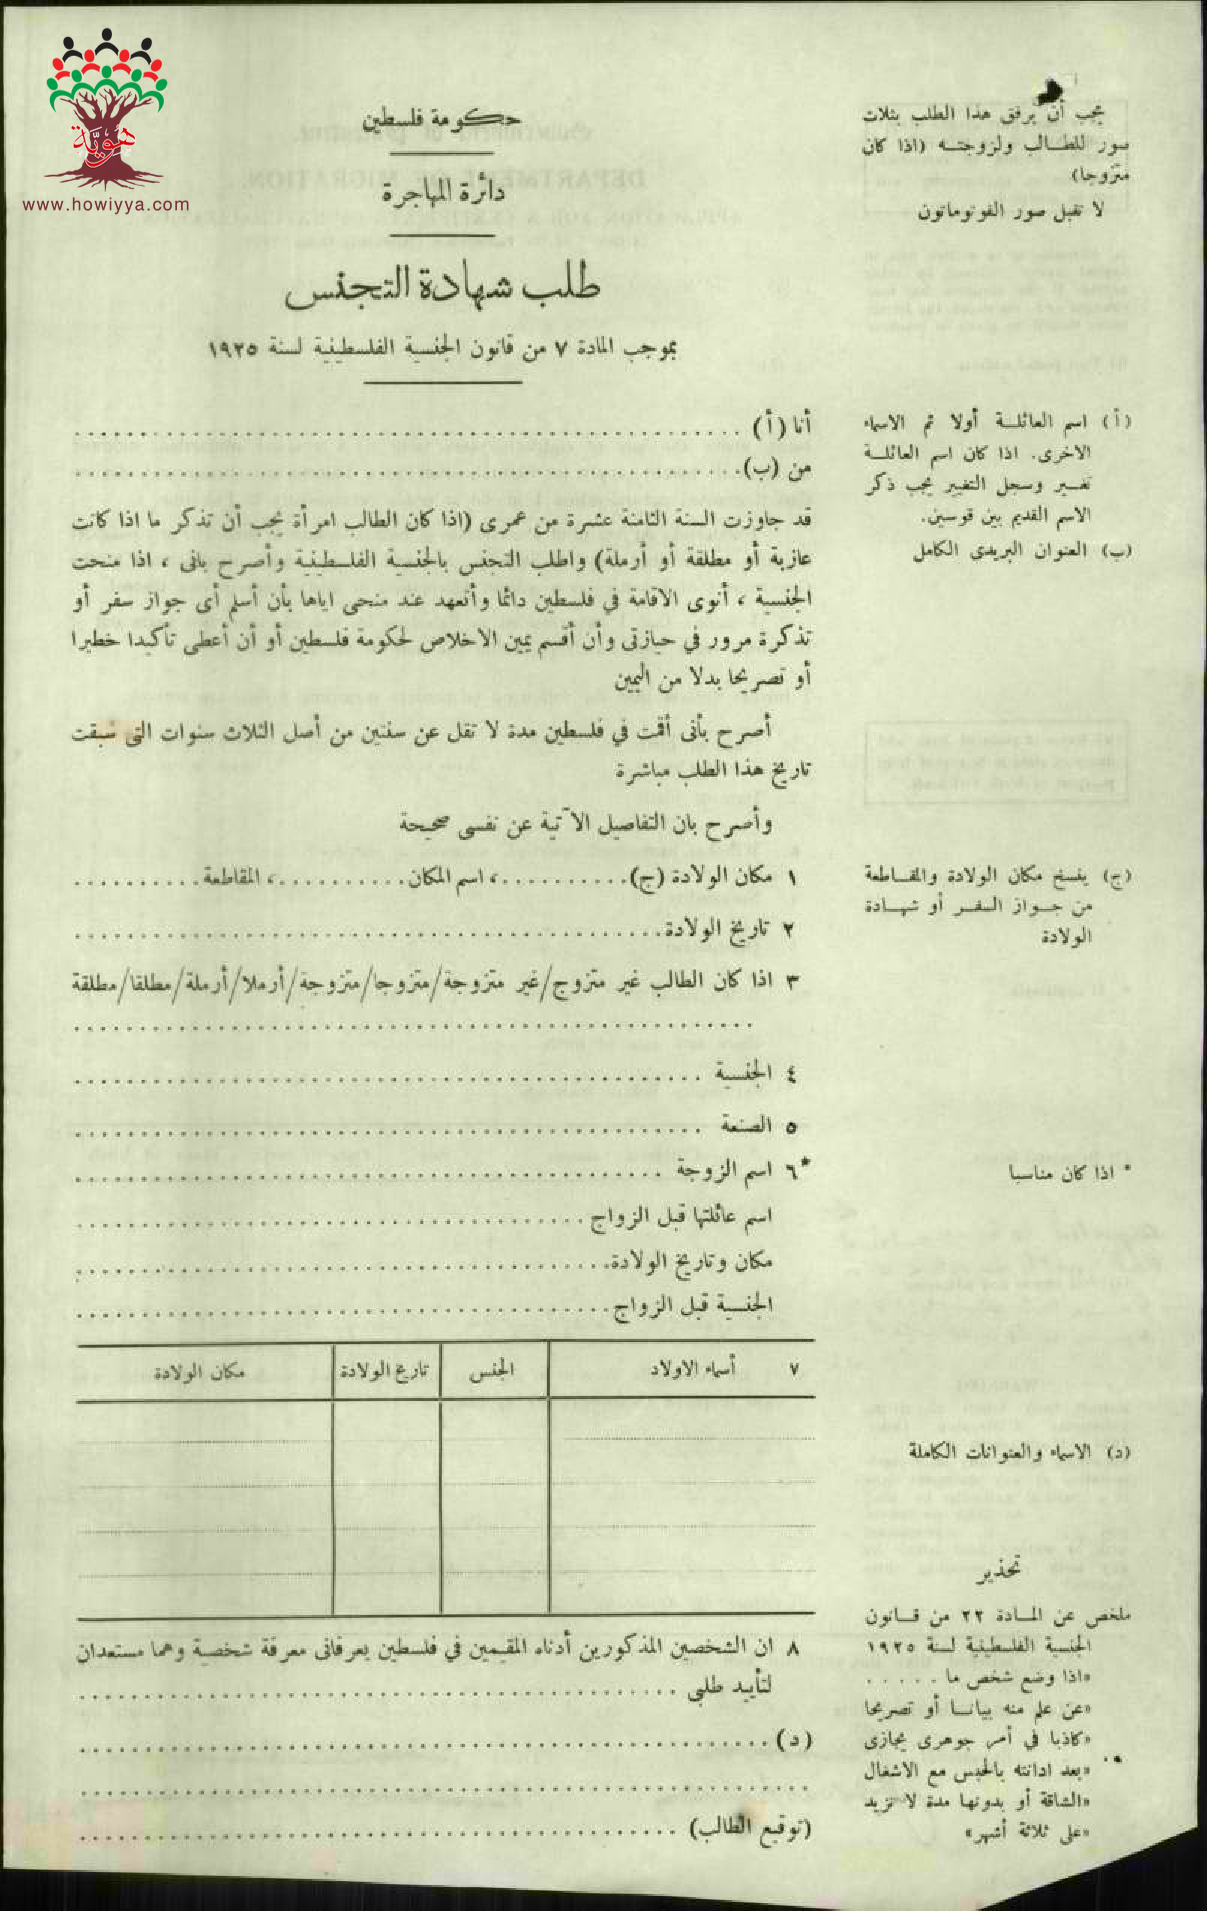 هوية
www.howiyya.com
حكومة فلسطين
دائرة المهاجرة
طلب شهادة التجنس
بموجب المادة ٧ من قانون الجنسية الفلسطينية لسنة ١٩٢٥
يجب أن يرفق هذا الطلب بثلاث
صور للطالب ولزوجته (اذا كان
متزوجا)
لا تقبل صور الفوتوماتون
أنا (أ)
من (ب)
قد جاوزت السنة الثامنة عشرة من عمرى (اذا كان الطالب امرأة يجب أن تذكر ما اذا كانت
عازبة أو مطلقة أو أرملة) واطلب التجنس بالجنسية الفلسطينية وأصرح بانى ، اذا منحت
الجنسية ، أنوى الاقامة في فلسطين دائما وأتعهد عند منحى اياها بأن أسلم أى جواز سفر أو
تذكرة مرور في حيازتى وأن أقسم يمين الاخلاص لحكومة فلسطين أو أن أعطى تأكيدا خطيرا
أو تصريحا بدلا من اليمين
أصرح بأنى أقمت في فلسطين مدة لا تقل عن سنتين من أصل الثلاث سنوات التى سبقت
تاريخ هذا الطلب مباشرة
وأصرح بان التفاصيل الآتية عن نفسى صحيحة
١ مكان الولادة (ج) ..........، اسم المكان ..........، المقاطعة ..........
٢ تاريخ الولادة
٣ اذا كان الطالب غير متزوج/غير متزوجة/متزوجا/متزوجة/أرملا/أرملة/مطلقا/مطلقة
٤ الجنسية
٥ الصنعة
*٦ اسم الزوجة
اسم عائلتها قبل الزواج
مكان وتاريخ الولادة
الجنسية قبل الزواج
٧ أسماء الاولاد الجنس تاريخ الولادة مكان الولادة
٨ ان الشخصين المذكورين أدناه المقيمين في فلسطين يعرفانى معرفة شخصية وهما مستعدان
لتأييد طلبى
(د)
(توقيع الطالب)
(أ) اسم العائلة أولا ثم الاسماء
الاخرى. اذا كان اسم العائلة
تغير وسجل التغيير يجب ذكر
الاسم القديم بين قوسين.
(ب) العنوان البريدى الكامل
(ج) ينسخ مكان الولادة والمقاطعة
من جواز السفر أو شهادة
الولادة
* اذا كان مناسبا
(د) الاسماء والعنوانات الكاملة
تحذير
ملخص عن المادة ٢٢ من قانون
الجنسية الفلسطينية لسنة ١٩٢٥
«اذا وضع شخص ما . . . . .
«عن علم منه بيانا أو تصريحا
«كاذبا في أمر جوهرى يجازى
«بعد ادانته بالحبس مع الاشغال
«الشاقة أو بدونها مدة لا تزيد
«على ثلاثة أشهر»